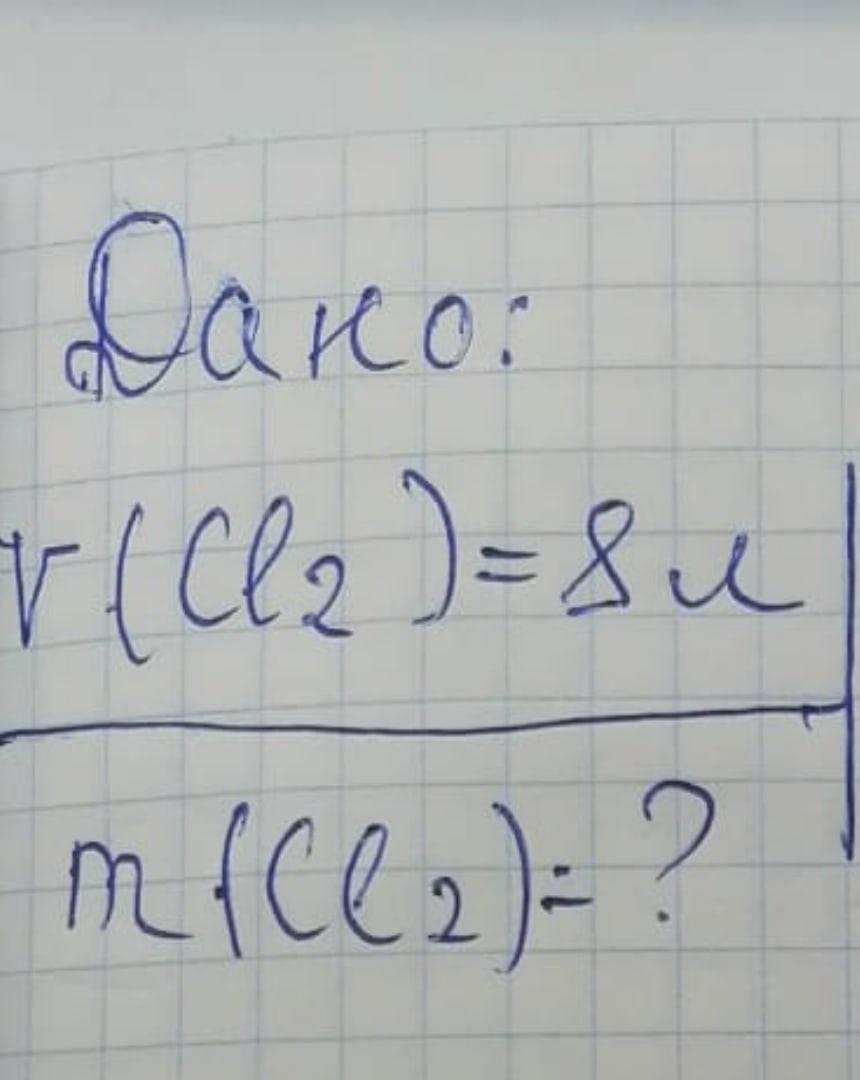 Дано:
V(Cl₂)=8л
m(Cl₂)=?